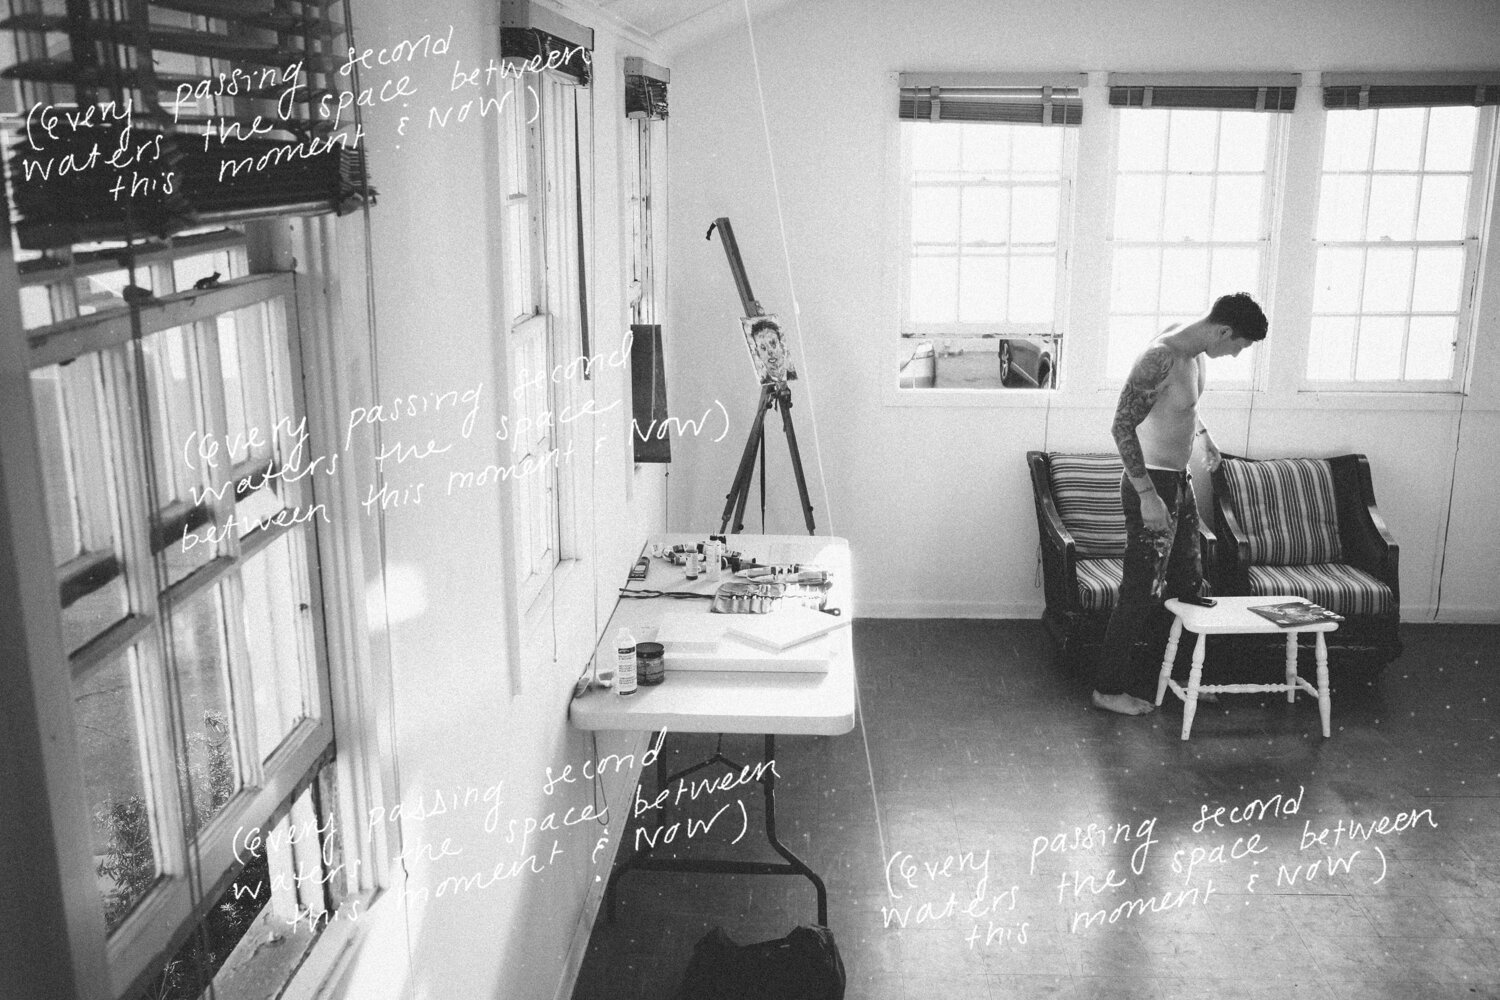 (Every passing second
waters the space between
this moment & NOW)
(Every passing second
waters the space
between this moment & NOW)
(Every passing second
waters the space between
this moment & NOW)
(Every passing second
waters the space between
this moment & NOW)